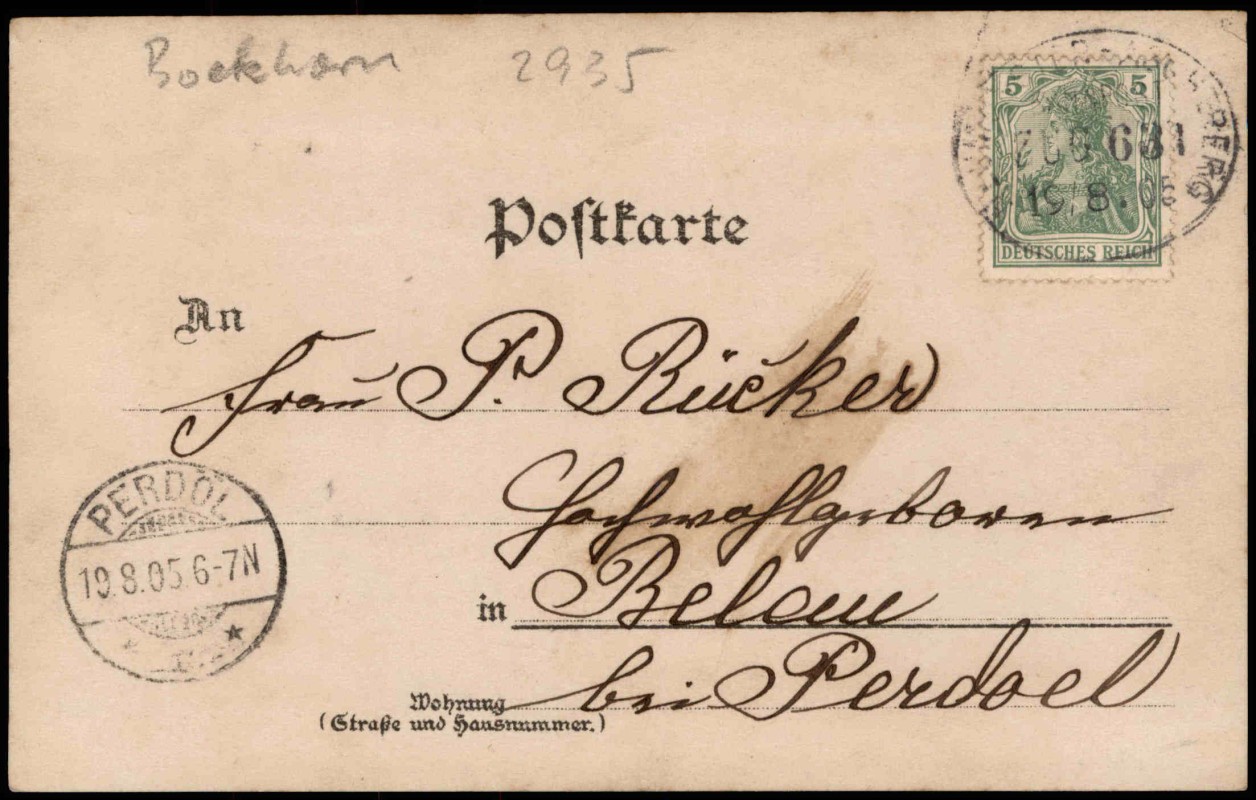 Bockhorn 2935
5 5
ZUG 631
19.8.05
DEUTSCHES REICH
Postkarte
An
Frau P. Rücker
Hochwohlgeboren
in Belau
bei Perdoel
Wohnung
(Straße und Hausnummer.)
PERDÖL
19.8.05.6-7N